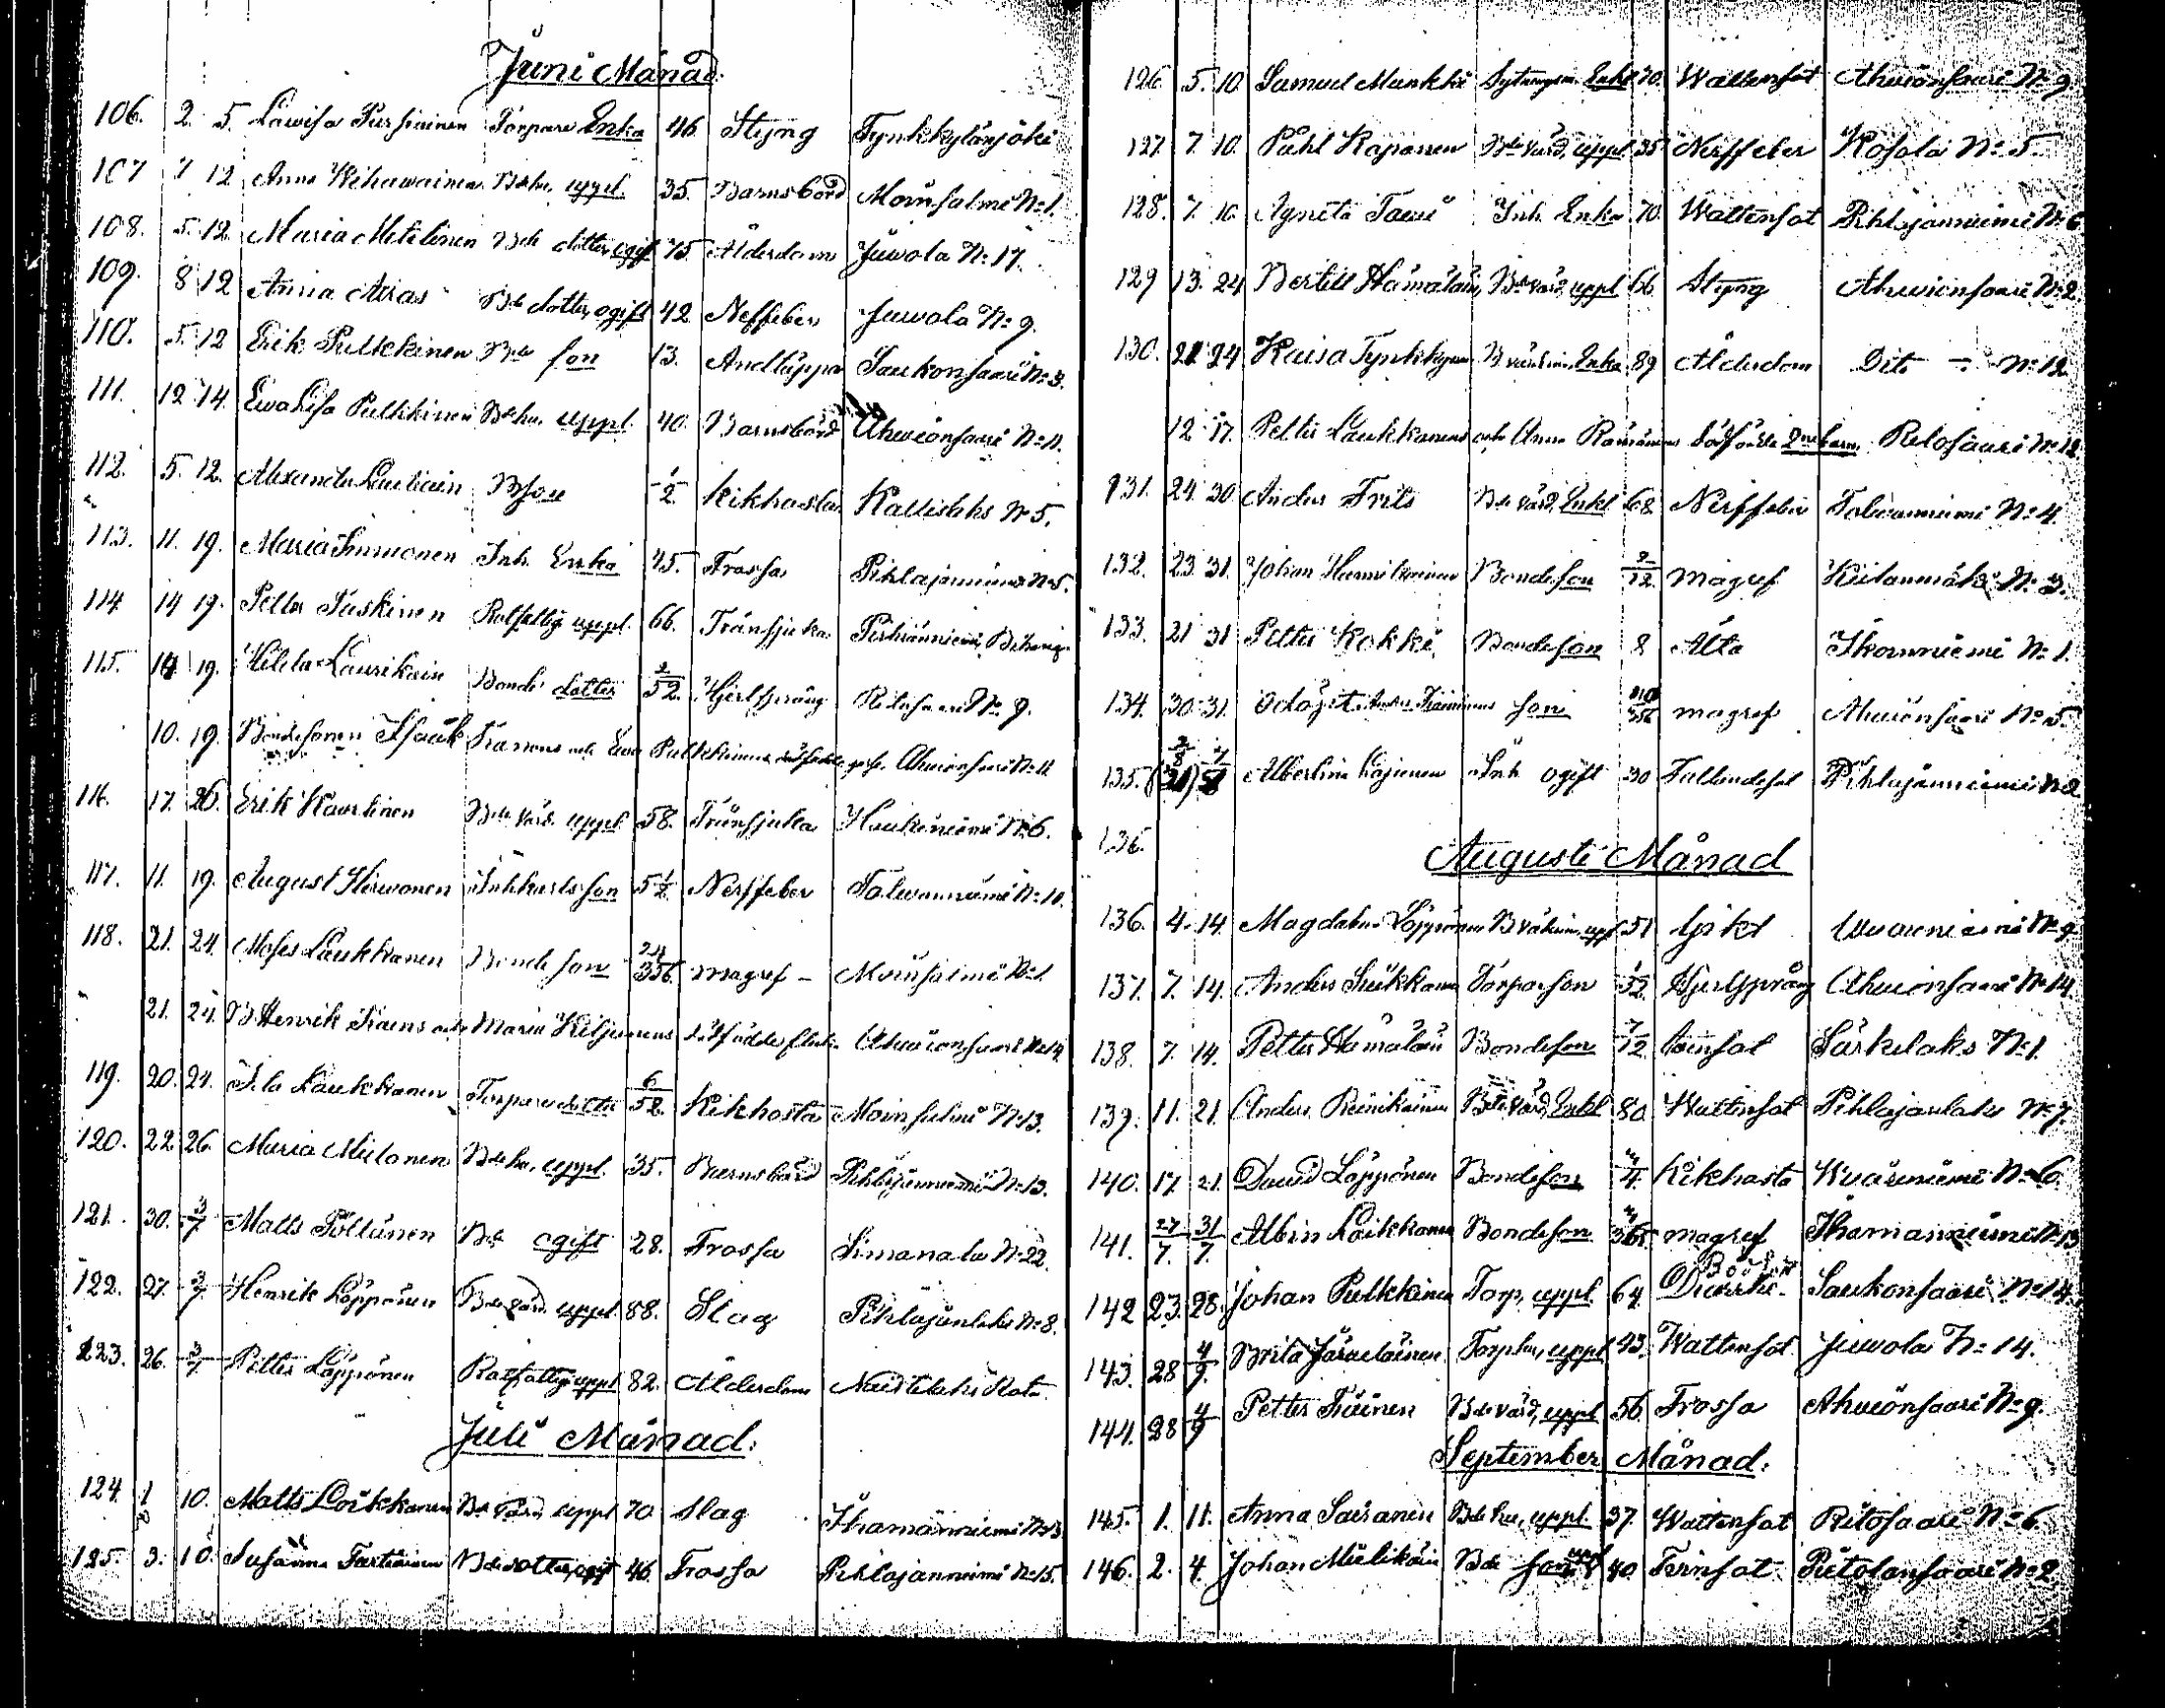 Juni Månad.
106. 2. 5. Lowisa Pursiainen Torpare Enka 46. Styng Tynkkylänjoki
107 7 12 Anna Wihawainen Bde hu. uppl. 35. Barnsbörd Moinsalmi No 1.
108. 5. 12. Maria Mikkonen Bde dotter ogift 75 Ålderdom Juwola No 17.
109. 8 12 Anna Airas Bde dotter, ogift 42 Neffeber Juwola No 9.
110. 5. 12 Erik Pulkkinen Bde son 13. Andtäppa Saukonsaari No 3.
111. 12 14. Ewa Lisa Pulkkinen Bde hu. uppl. 40. Barnsbörd Ahwionsaari No 11.
112. 5. 12. Alexander Lautiain B son 1/2 Kikhosta Kallislahs No 5.
113. 11. 19. Maria Immonen Inh. Enka 75. Frossa Pihlajaniemi No 5.
114 14 19. Petter Puskinen Rotfattig uppl. 66. Trånsjuka
115. 14 19. Hilda Laurikain Bonde dotter 2/52. Hjertsprång Ritosaari No 9.
10. 19. Bondesonen Isaak Iranens och Ewa Pulkkinens dödfödde gosse. Ahwionsaari No 11
116. 17. 26. Erik Kaurtinen Bde värd. uppl 58. Trånsjuka Haukiniemi No 6.
117. 11. 19. August Hirwonen Inhkarlsson 5 1/2 Nerffeber Talwanniemi No 10.
118. 21. 24. Moses Laukkanen Bonde son 24/356 magref – Moinsalmi No 1.
21. 24. B Henrik Iraens och Maria Kiljunens dödfödde flicka Ahwionsaari No 14
119. 20. 24. Ida Laukkanen Torpare dotter 6/52 Kikhosta Moinsalmi No 13.
120. 22 26. Maria Mielonen Bde hu, uppl. 35. Barnsbörd Pihlajaniemi No 13.
121. 30. 3/7 Matts Pöllänen Bde ogift 28. Frossa Simanala No 22.
122. 27. 3/7 Henrik Löppönen Bde värd. uppl 88. Slag Pihlajanlaks No 8.
123. 26. 3/7 Petter Löppönen Rotfattig uppl 82. Ålderdom
Juli Månad.
124. 1 10. Matts Loikkanen Bde värd uppl 70 Slag Ihamaniemi No 13
125. 3. 10. Susanna Tartiainen Bde dotter, ogift 46. Frossa Pihlajanniemi No 15.
126. 5. 10. Samuel Munkki Enkl 70. Wattensot Ahwionsaari No 9.
127. 7. 10. Påhl Kaponen Bde värd, uppl. 35 Nerffeber Kosola No 5.
128. 7. 10. Agneta Tawi Inh. Enka 70. Wattensot Pihlajanniemi No 6
129 13. 24 Bertill Hämäläin Bde värd, uppl 66. Styng Ahwionsaari No 2.
130. 21 24 Kaisa Tynkkynen B värdin. Enka 89 Ålderdom Dito – No 12
12 17. Petter Laukkanens och Anna Räisänens dödfödde gossebarn. Ritosaari No 12
131. 24. 30. Anders Frits Bde värd, Enkl 68 Nerffeber Talwanniemi No 4.
132. 23. 31. Johan Bondeson 2/12 magref No 3.
133. 21 31 Petter Kokki Bondeson 8 Ålta Ikoinniemi No 1.
134. 30. 31. Odöpt son magref Ahwionsaari No 5.
135. Albertina Kajanen Inh ogift 30 Fallandesot Pihlajanniemi No 2
136.
Augusti Månad
136. 4. 14. Magdalena Löppönen B värdin. uppl. 51 Gikt No 9.
137. 7. 14. Anders Suikkanen Torparson 1/52. Hjertsprång Ahwionsaari No 14.
138. 7. 14. Petter Hämäläin Bondeson 7/12 Särkilaks No 1.
139. 11. 21. Anders Reinikainen Bde värd, Enkl 80. Wattensot Pihlajanlaks No 7.
140. 17. 21. David Löppönen Bondeson Kikhosta Kuarniemi No 6.
141. 27/7. 31/7. Albin Loikkanen Bondeson magref Ihamaniemi No 13
142 23. 28. Johan Pulkkinen Torp, uppl. 64 Saukonsaari No 14.
143. 28 4/9. Brita Israelainen Torp hu, uppl 43. Wattensot Juwola No 14.
144. 28 4/9 Petter Iräinen Bde värd, uppl 56. Frossa Ahwionsaari No 9.
September Månad.
145. 1. 11. Anna Sairanen Bde hu, uppl. 37. Wattensot Ritosaari No 6.
146. 2. 4. Johan Mielikäin Bde son 40 Tvinsot Pietolansaari No 2.